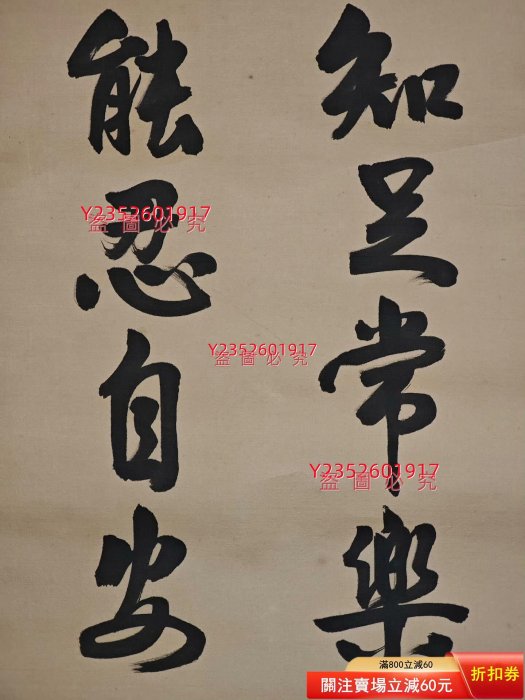 知足常樂
能忍自安
Y2352601917
盜圖必究
Y2352601917
盜圖必究
Y2352601917
盜圖必究
滿800立減60
關注賣場立減60元
折扣券